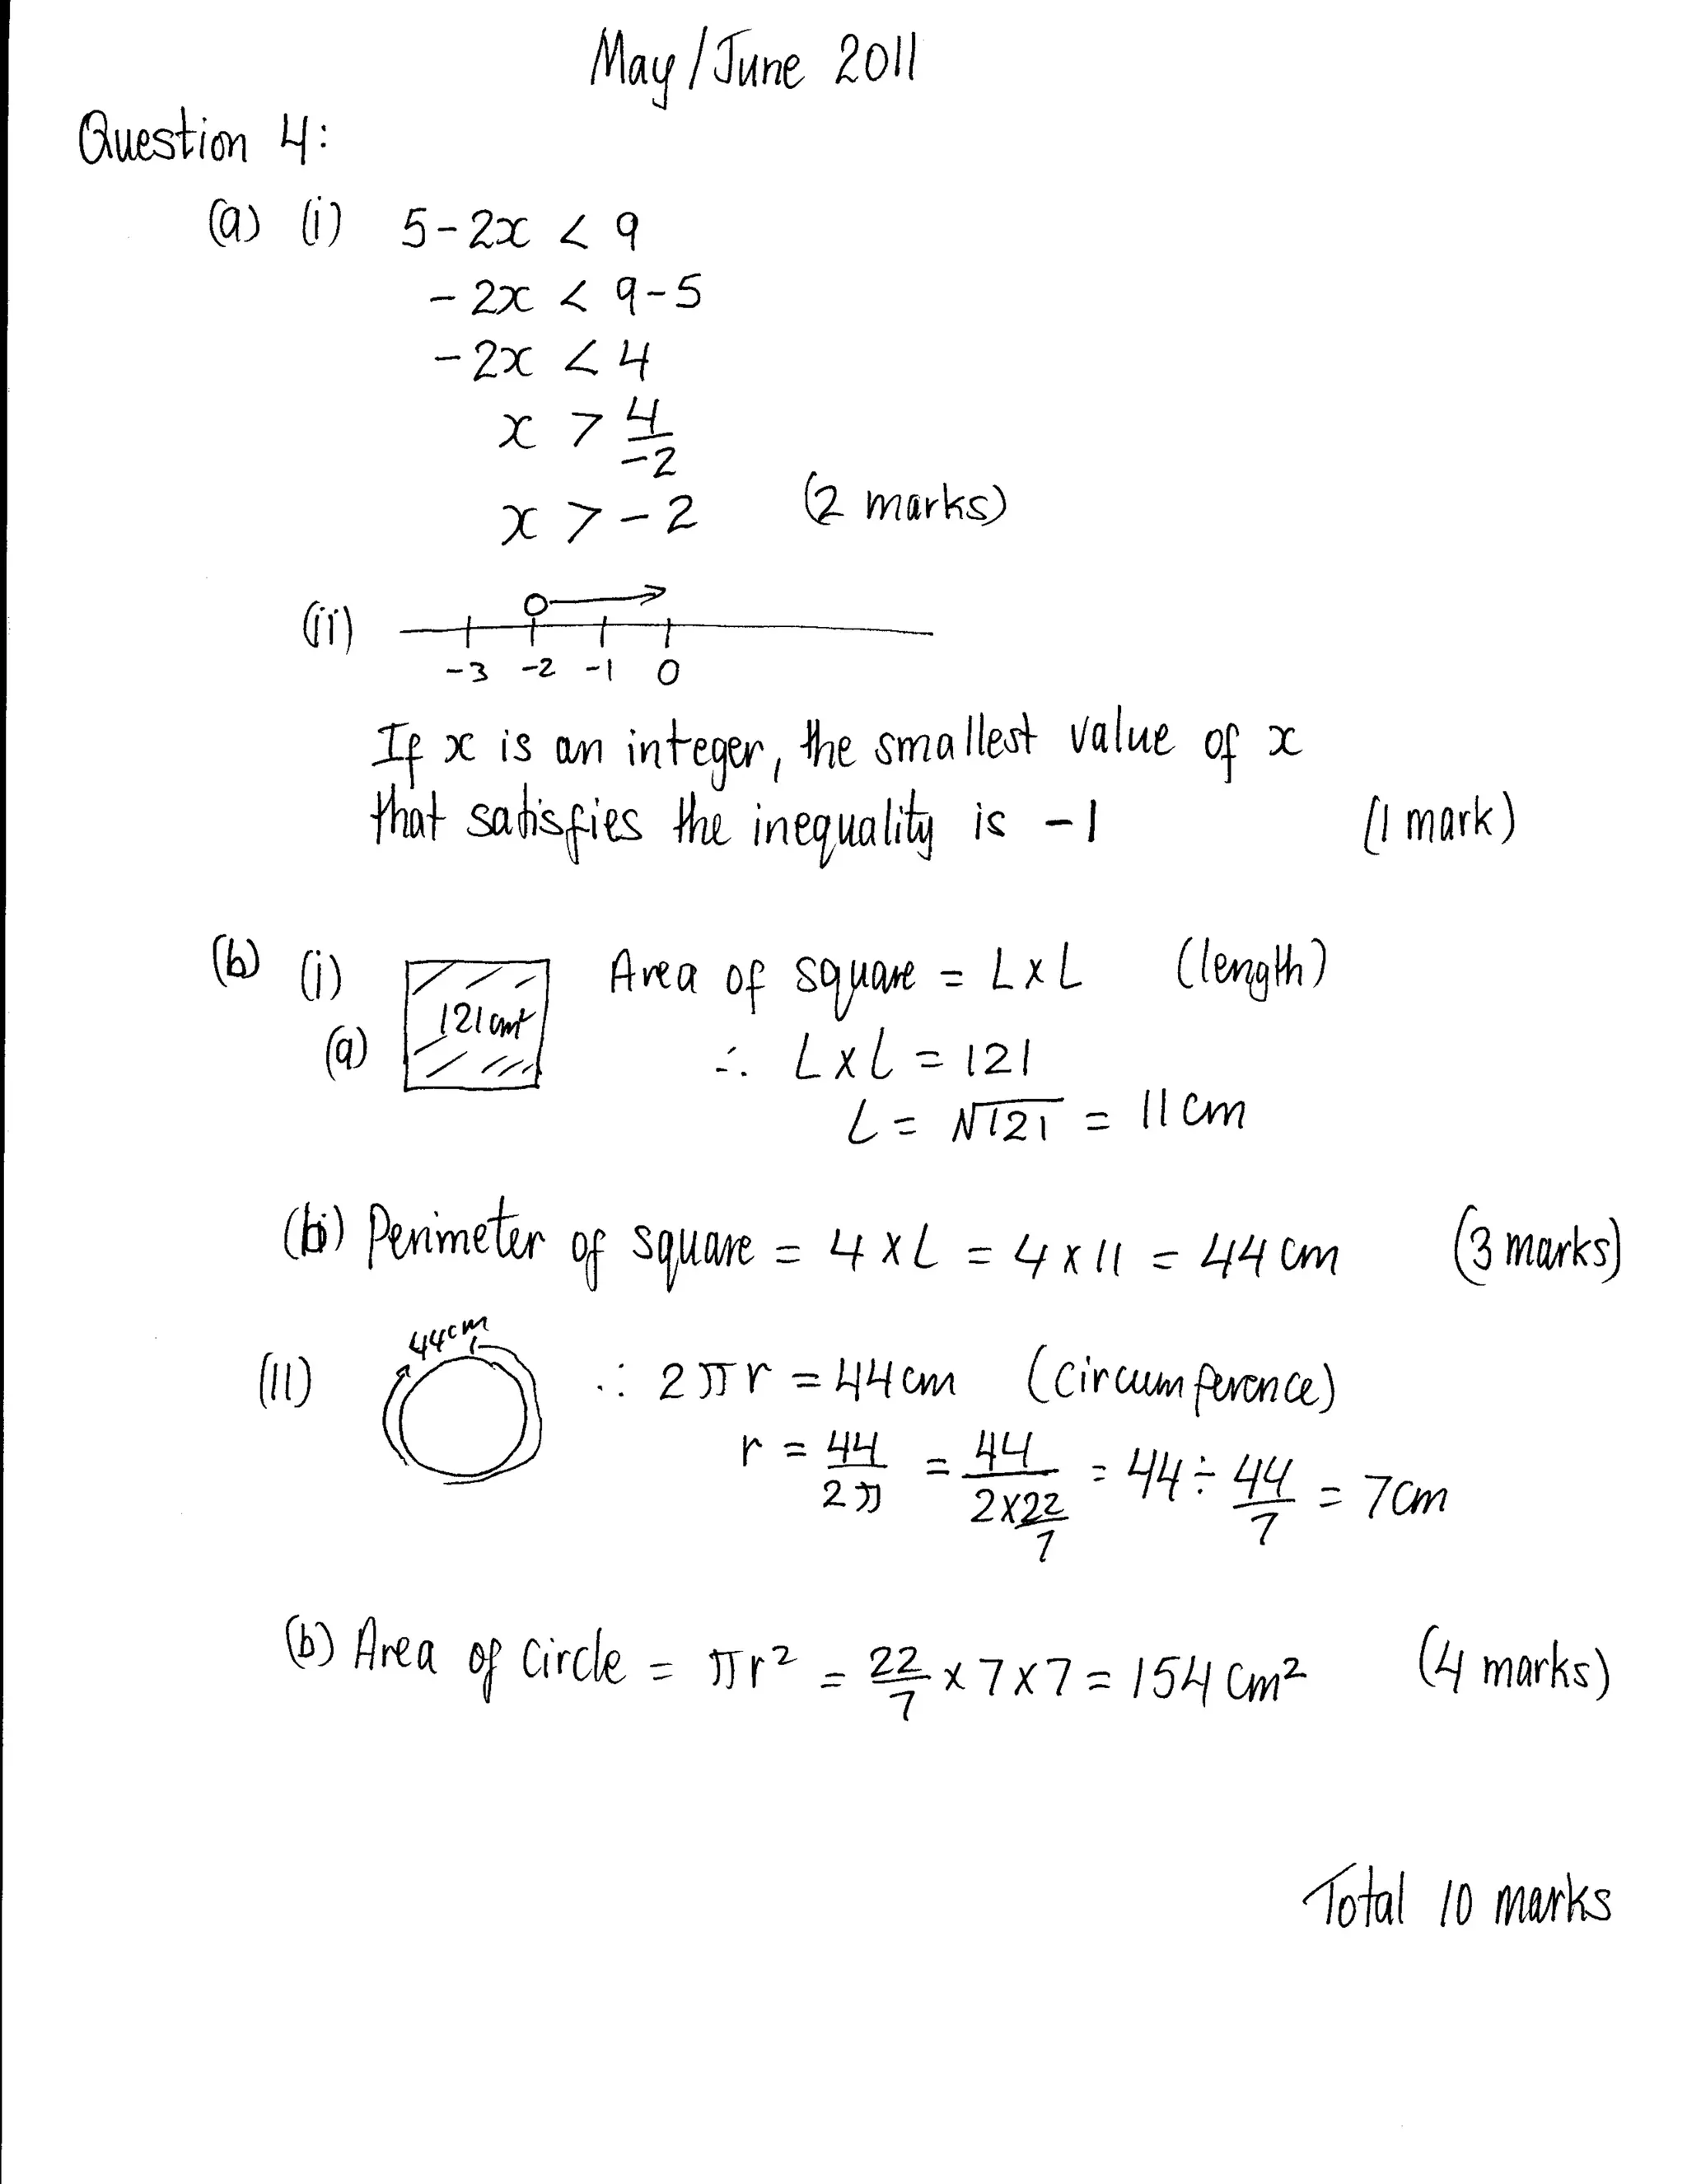 May/June 2011
Question 4:
(a) (i) 5-2x < 9
-2x < 9-5
-2x < 4
x > 4/-2
x > -2 (2 marks)
(ii)
-3 -2 -1 0
If x is an integer, the smallest value of x
that satisfies the inequality is -1 (1 mark)
(b) (i) Area of square = L x L (length)
(a) 121cm² ∴ L x L = 121
L = √121 = 11cm
(b) Perimeter of square = 4 x L = 4 x 11 = 44 cm (3 marks)
44cm
(II) ∴ 2πr = 44cm (circumference)
r = 44/2π = 44/(2x22/7) = 44 ÷ 44/7 = 7cm
(b) Area of circle = πr² = 22/7 x 7 x 7 = 154 cm² (4 marks)
Total 10 marks